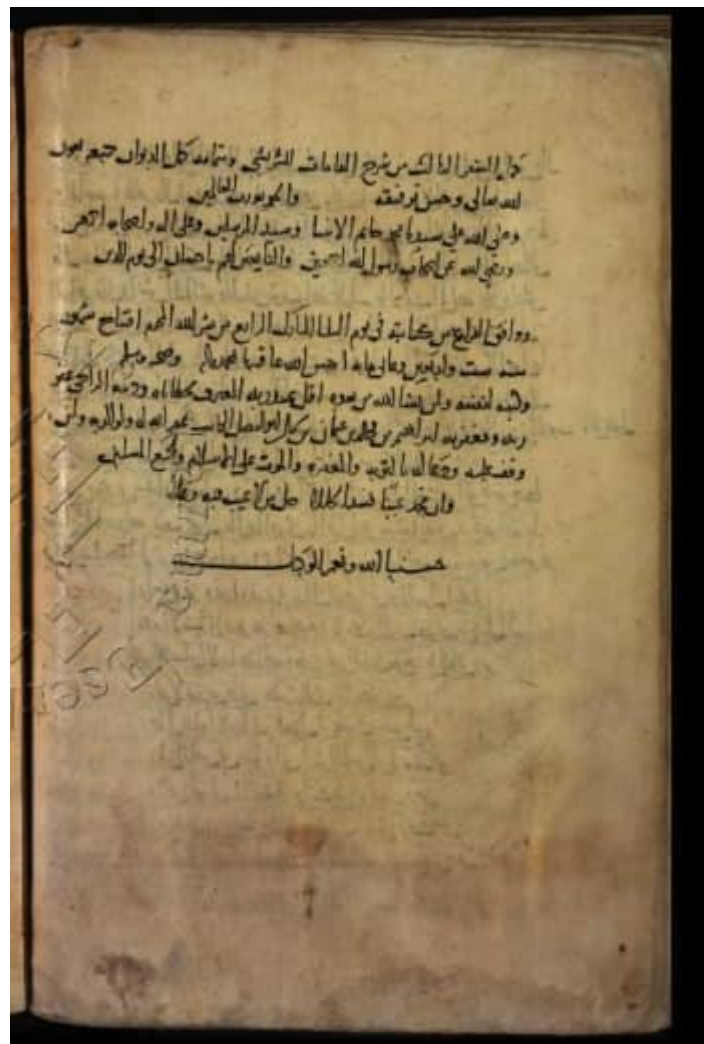 كمل السفر الثالث من شرح المقامات للشريشي وبتمامه كمل الديوان جميعه بعون
الله تعالى وحسن توفيقه والحمد لله رب العالمين
وصلى الله على سيدنا محمد خاتم الانبيا وسيد المرسلين وعلى اله واصحابه اجمعين
ورضي الله عن اصحاب رسول الله اجمعين والتابعين لهم باحسان الى يوم الدين
ووافق الفراغ من كتابته في يوم الثلاثا المبارك الرابع من شهر الله المحرم افتتاح شهور
سنة ست واربعين وثماني مايه احسن الله عاقبتها بمحمد واله وصحبه وسلم
وكتبه لنفسه ولمن يشا الله من بعده اقل عبيد ربه المعترف بخطاياه وذنبه الراجي عفو
ربه ومغفرته ابراهيم بن محمد بن عثمان بن كمال ابو الفضل الكاتب غفر الله له ولوالديه ولمن
وقف عليه ودعا له بالتوبة والمغفرة والموت على الاسلام ولجميع المسلمين
وان تجد عيبا فسد الخللا جل من لا عيب فيه وعلا
حسبنا الله ونعم الوكيل